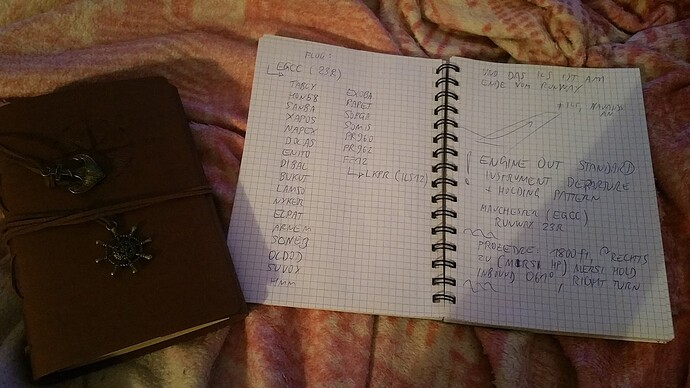 FLUG:
EGCC (23R)
TABLY
HON58
SANBA
XAPOS
NAPEX
DOCAS
ENITO
DIBAL
BUKUT
LAMSO
NYKER
ELPAT
ARNEM
SONEB
DLDOD
SUVOX
HMM
EXOBA
RAPET
SOPGO
SOMIS
PR960
PR962
FF12
LKPR (ILS12)
UND DAS ILS IST AM
ENDE VOM RUNWAY
ILS,
AN
! ENGINE OUT STANDARD
INSTRUMENT DEPARTURE
+ HOLDING PATTERN
MANCHESTER (EGCC)
RUNWAY 23R
PROZEDURE: 1800 ft, RECHTS
ZU (MIRSI HP) MIRSI HOLD
INBOUND 061°, RIGHT TURN